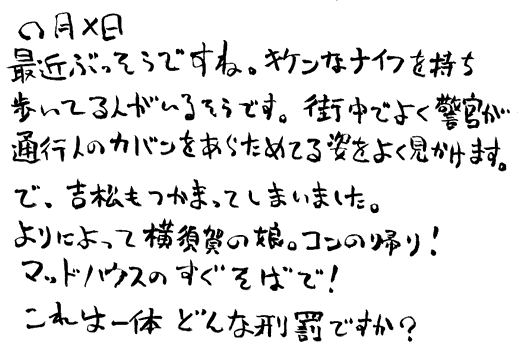 ○月×日
最近ぶっそうですね。キケンなナイフを持ち
歩いてる人がいるそうです。街中でよく警官が
通行人のカバンをあらためてる姿をよく見かけます。
で、吉松もつかまってしまいました。
よりによって横須賀の娘。コンの帰り!
マッドハウスのすぐそばで!
これは一体どんな刑罰ですか?